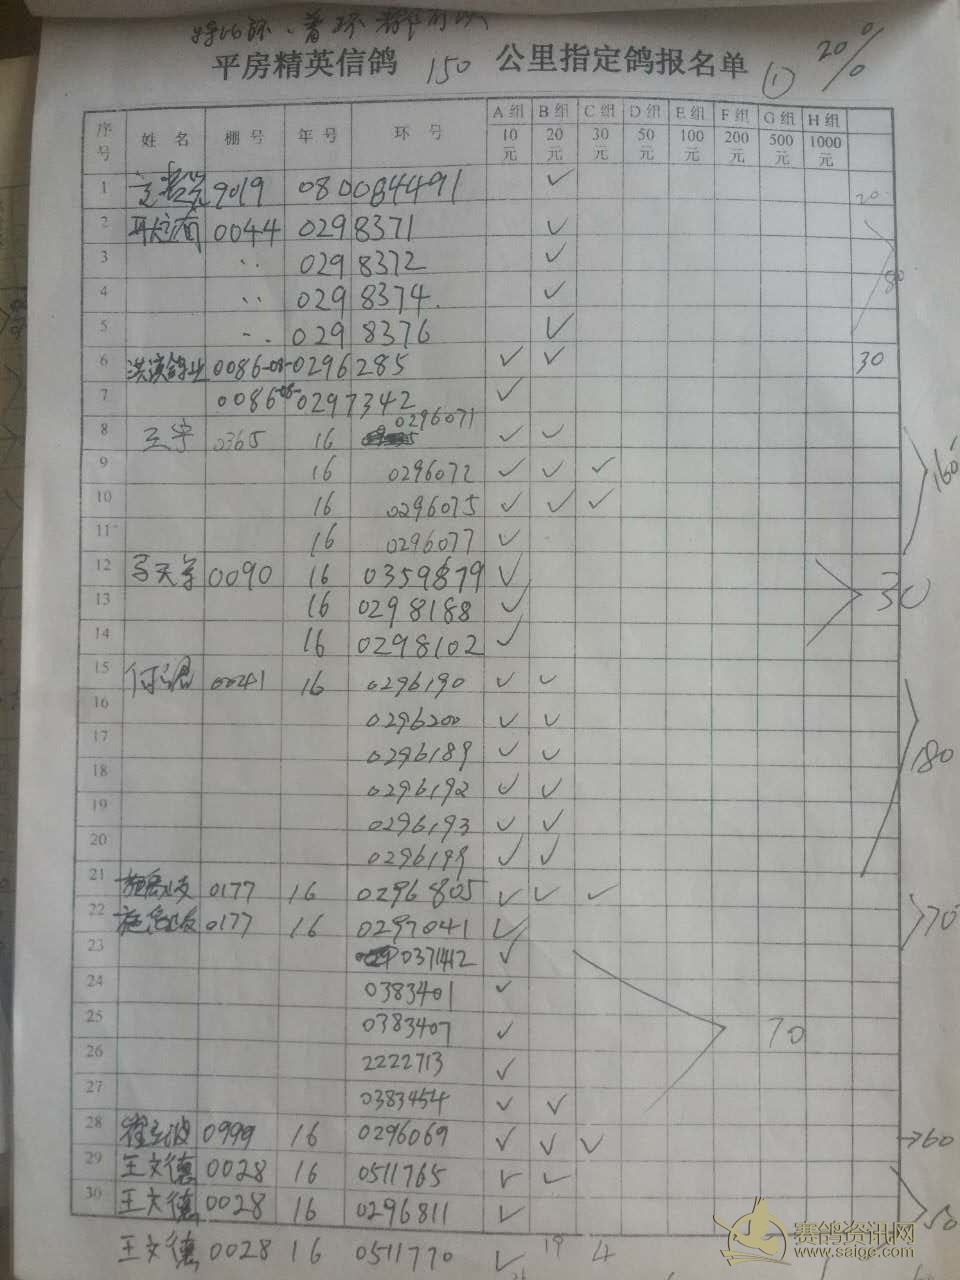 特比环、普环都可以
平房精英信鸽 150 公里指定鸽报名单 ① 20%
序号 姓 名 棚 号 年 号 环 号 A组 10元 B组 20元 C组 30元 D组 50元 E组 100元 F组 200元 G组 500元 H组 1000元
1 9019 0800844491 ✓ 20
2 0044 0298371 ✓
3 〃 0298372 ✓
4 〃 0298374 ✓ 80
5 〃 0298376 ✓
6 鸽业 0086-08-0296285 ✓ ✓ 30
7 0086-08-0297342 ✓
8 王宇 0365 16 0296071 ✓ ✓
9 16 0296072 ✓ ✓ ✓ 160
10 16 0296075 ✓ ✓ ✓
11 16 0296077 ✓
12 0090 16 0359879 ✓
13 16 0298188 ✓ 30
14 16 0298102 ✓
15 00241 16 0296190 ✓ ✓
16 0296200 ✓ ✓
17 0296189 ✓ ✓ 180
18 0296192 ✓ ✓
19 0296193 ✓ ✓
20 0296199 ✓ ✓
21 0177 16 0296805 ✓ ✓ ✓
22 0177 16 0297041 ✓ 70
23 0371412 ✓
24 0383401 ✓
25 0383407 ✓ 70
26 2222713 ✓
27 0383454 ✓ ✓
28 0999 16 0296069 ✓ ✓ ✓ →60
29 王文德 0028 16 0511765 ✓ ✓
30 王文德 0028 16 0296811 ✓ 50
王文德 0028 16 0511770 ✓ 19 4
赛鸽资讯网
www.saige.com